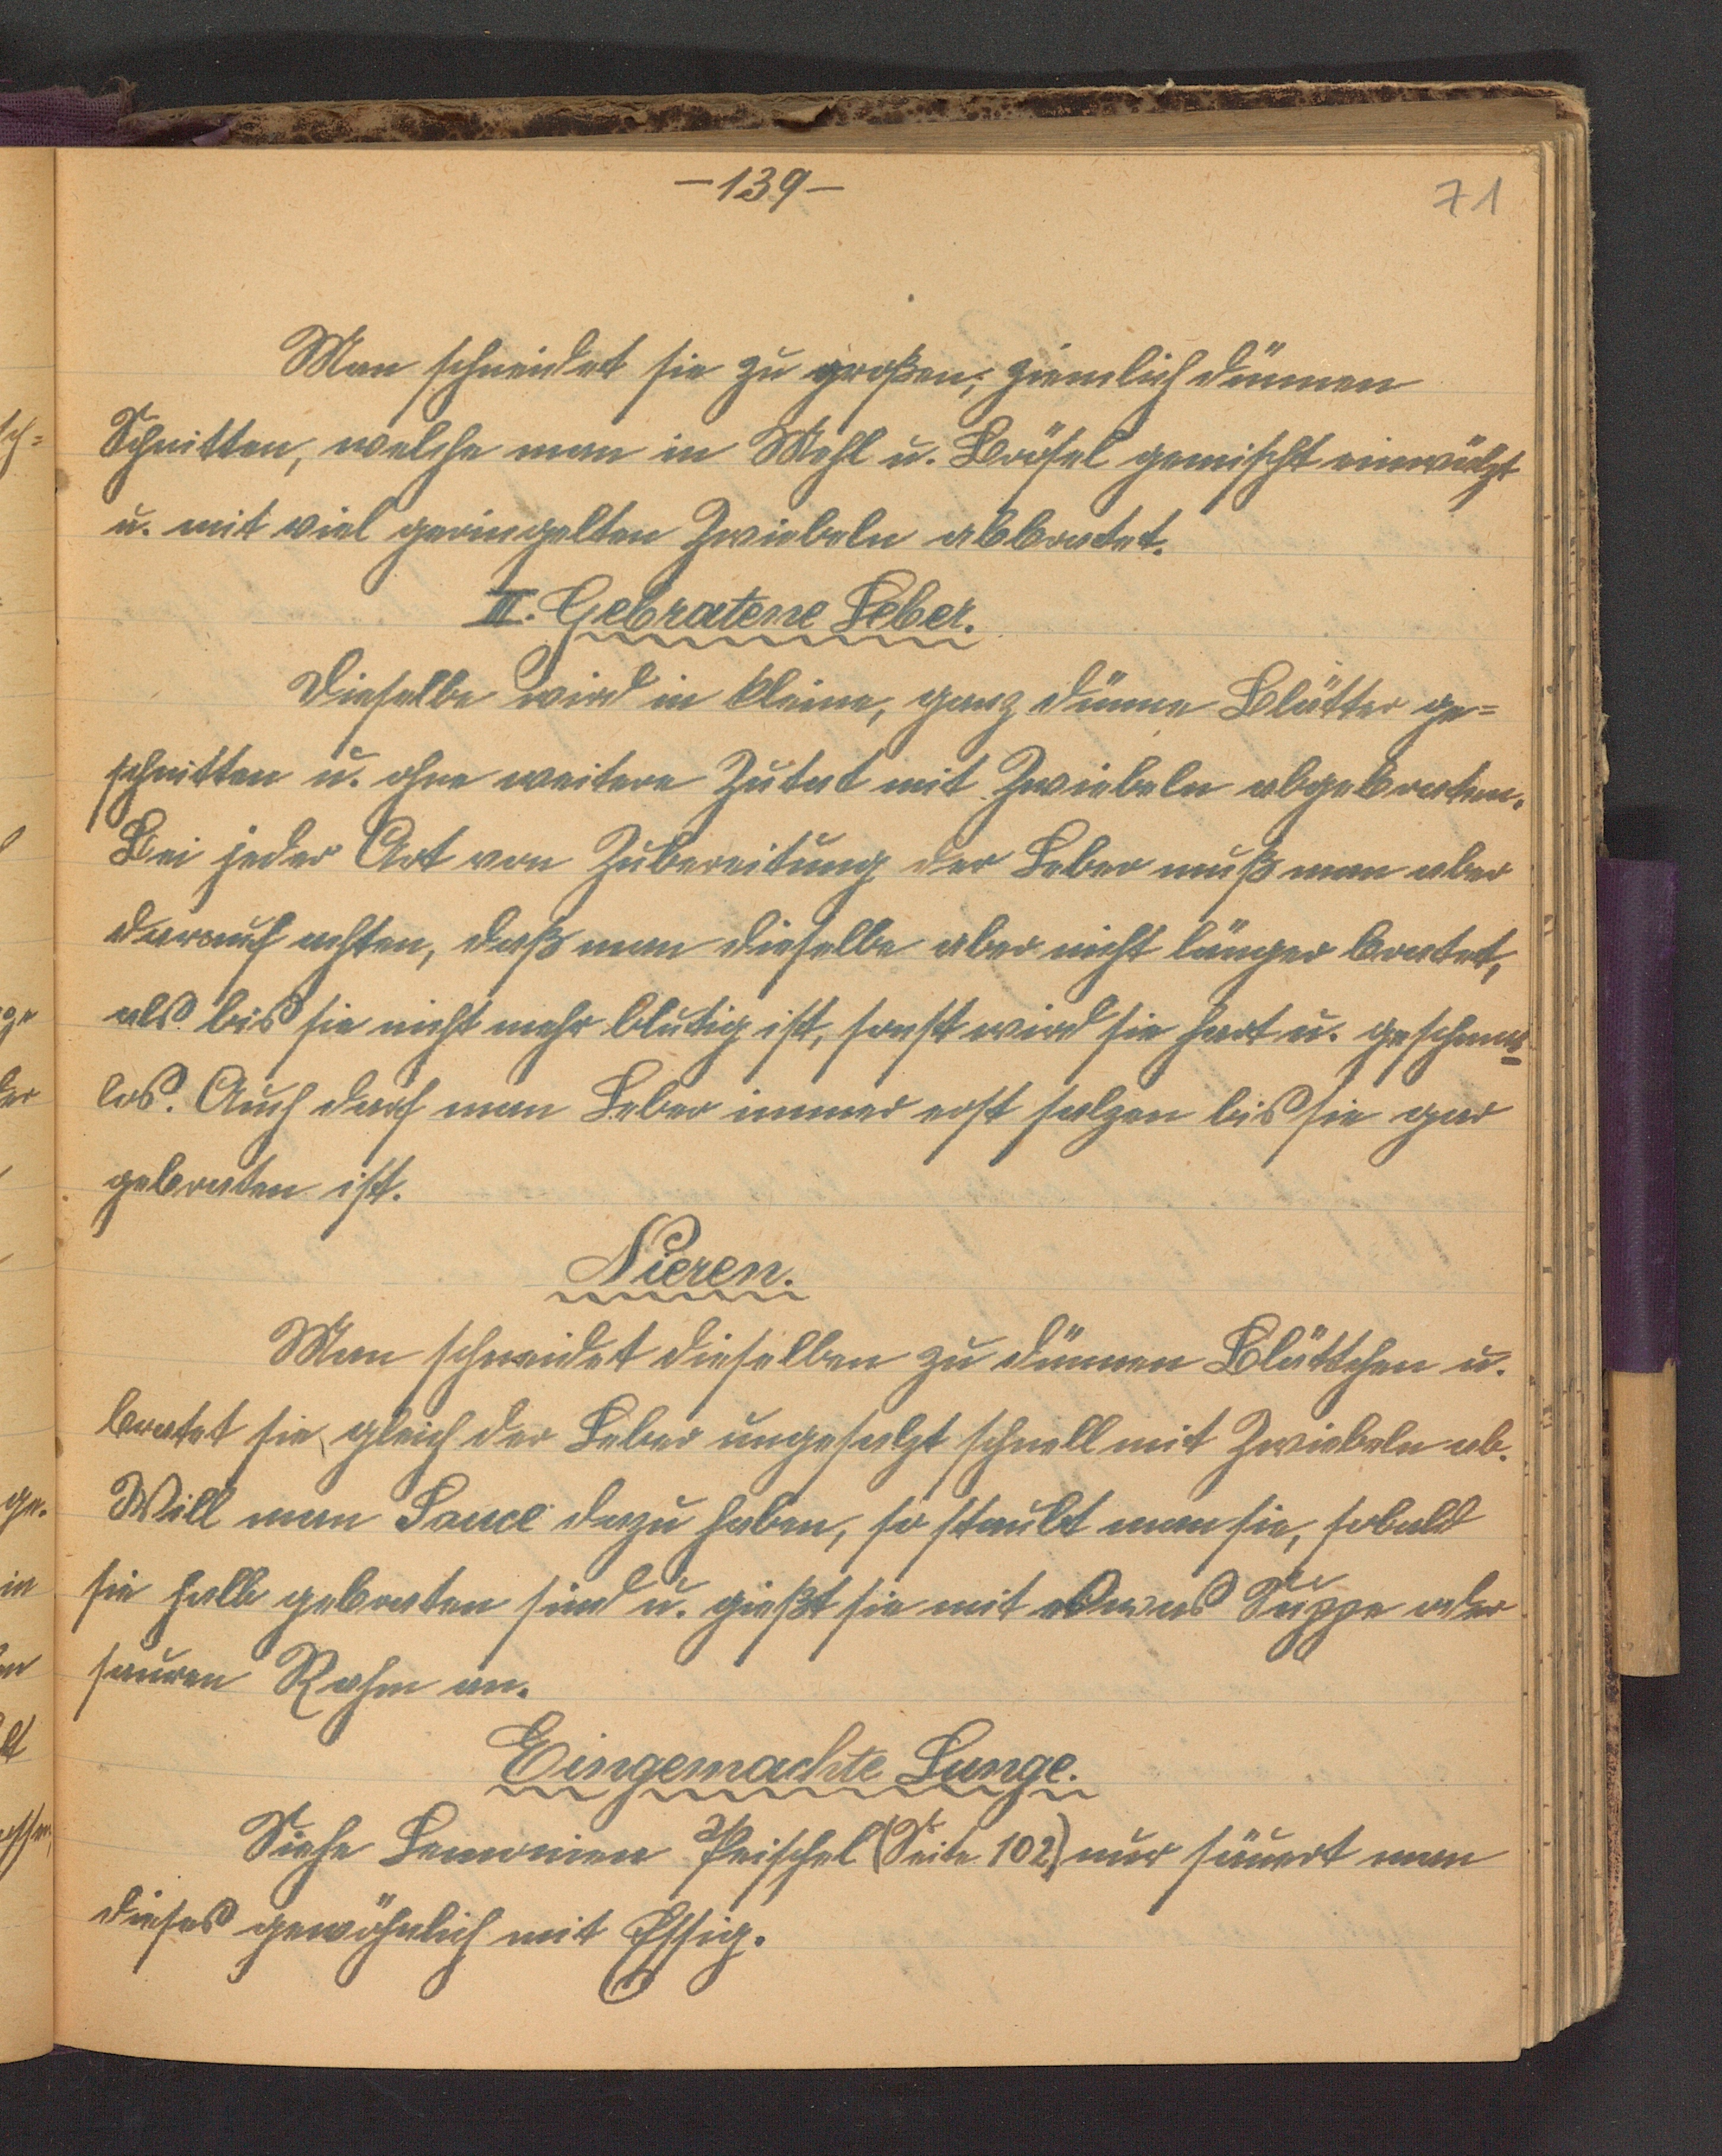 —139—
71
Man schneidet sie zu großen, ziemlich dünnen
Schnitten, welche man in Mehl u. Brösel gemischt einwälzt
u. mit viel geringelten Zwiebeln abbratet.
II. Gebratene Leber.
Dieselbe wird in kleine, ganz dünne Blätter ge=
schnitten u. ohne weitere Zutat mit Zwiebeln abgebraten.
Bei jeder Art von Zubereitung der Leber muß man aber
darauf achten, daß man dieselbe aber nicht länger bratet,
als bis sie nicht mehr blutig ist, sonst wird sie hart u. geschmack
los. Auch darf man Leber immer erst salzen bis sie gar
gebraten ist.
Nieren.
Man schneidet dieselben zu dünnen Blättchen u.
bratet sie, gleich der Leber ungesalzt schnell mit Zwiebeln ab.
Will man Sauce dazu haben, so staubt man sie, sobald
sie halb gebraten sind u. gießt sie mit etwas Suppe oder
sauren Rahm an.
Eingemachte Lunge.
Siehe Lemonien Peischel (Seite 102) nur säuert man
dieses gewöhnlich mit Essig.